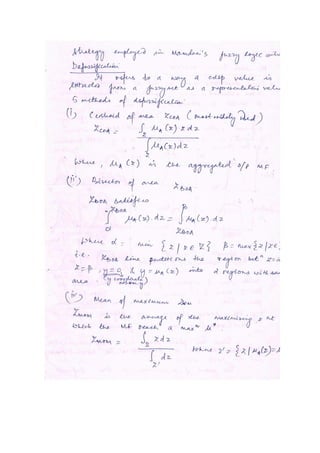 Strategy employed in Mamdani's fuzzy logic
Defuzzification
It refers to a way a crisp value is
from a fuzzy set as a representation
5 methods of defuzzification
(i) Centroid of area Zcoa (most widely used)
Zcoa = ∫z μA(z) z dz
∫z μA(z) dz
where, μA(z) is the aggregated o/p MF.
(ii) Bisector of area ZBOA
ZBOA satisfies
∫α^ZBOA μA(z) dz = ∫ZBOA^β μA(z) dz
where α = min {z | z ∈ Z} β = max {z | z ∈
i.e. ZBOA line partitions the region
z = β, y = 0 & y = μA(z) into 2 regions with
area (y coordinate
(iv) Mean of maximum
Zmom is the average of the maximising z at
which the MF reach a max^m μ*.
Zmom = ∫z' z dz
∫z' dz
where z' = {z | μA(z) =